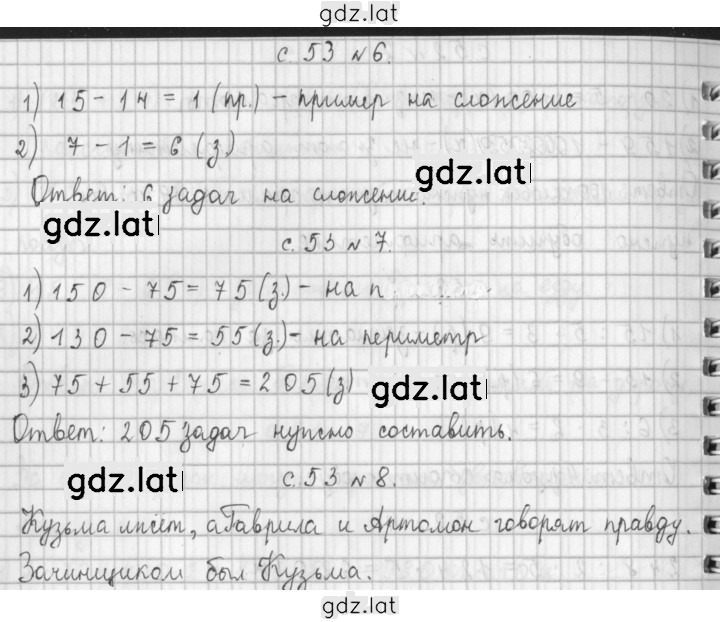 gdz.lat
с. 53 № 6.
1) 15 - 14 = 1 (пр.) - пример на сложение
2) 7 - 1 = 6 (з.)
gdz.lat
Ответ: 6 задач на сложение.
gdz.lat
с. 53 № 7.
1) 150 - 75 = 75 (з.) - на п
2) 130 - 75 = 55 (з.) - на периметр
3) 75 + 55 + 75 = 205 (з)
gdz.lat
Ответ: 205 задач нужно составить.
gdz.lat
с. 53 № 8.
Кузьма лжёт, а Гаврила и Артомон говорят правду.
Зачинщиком был Кузьма.
gdz.lat